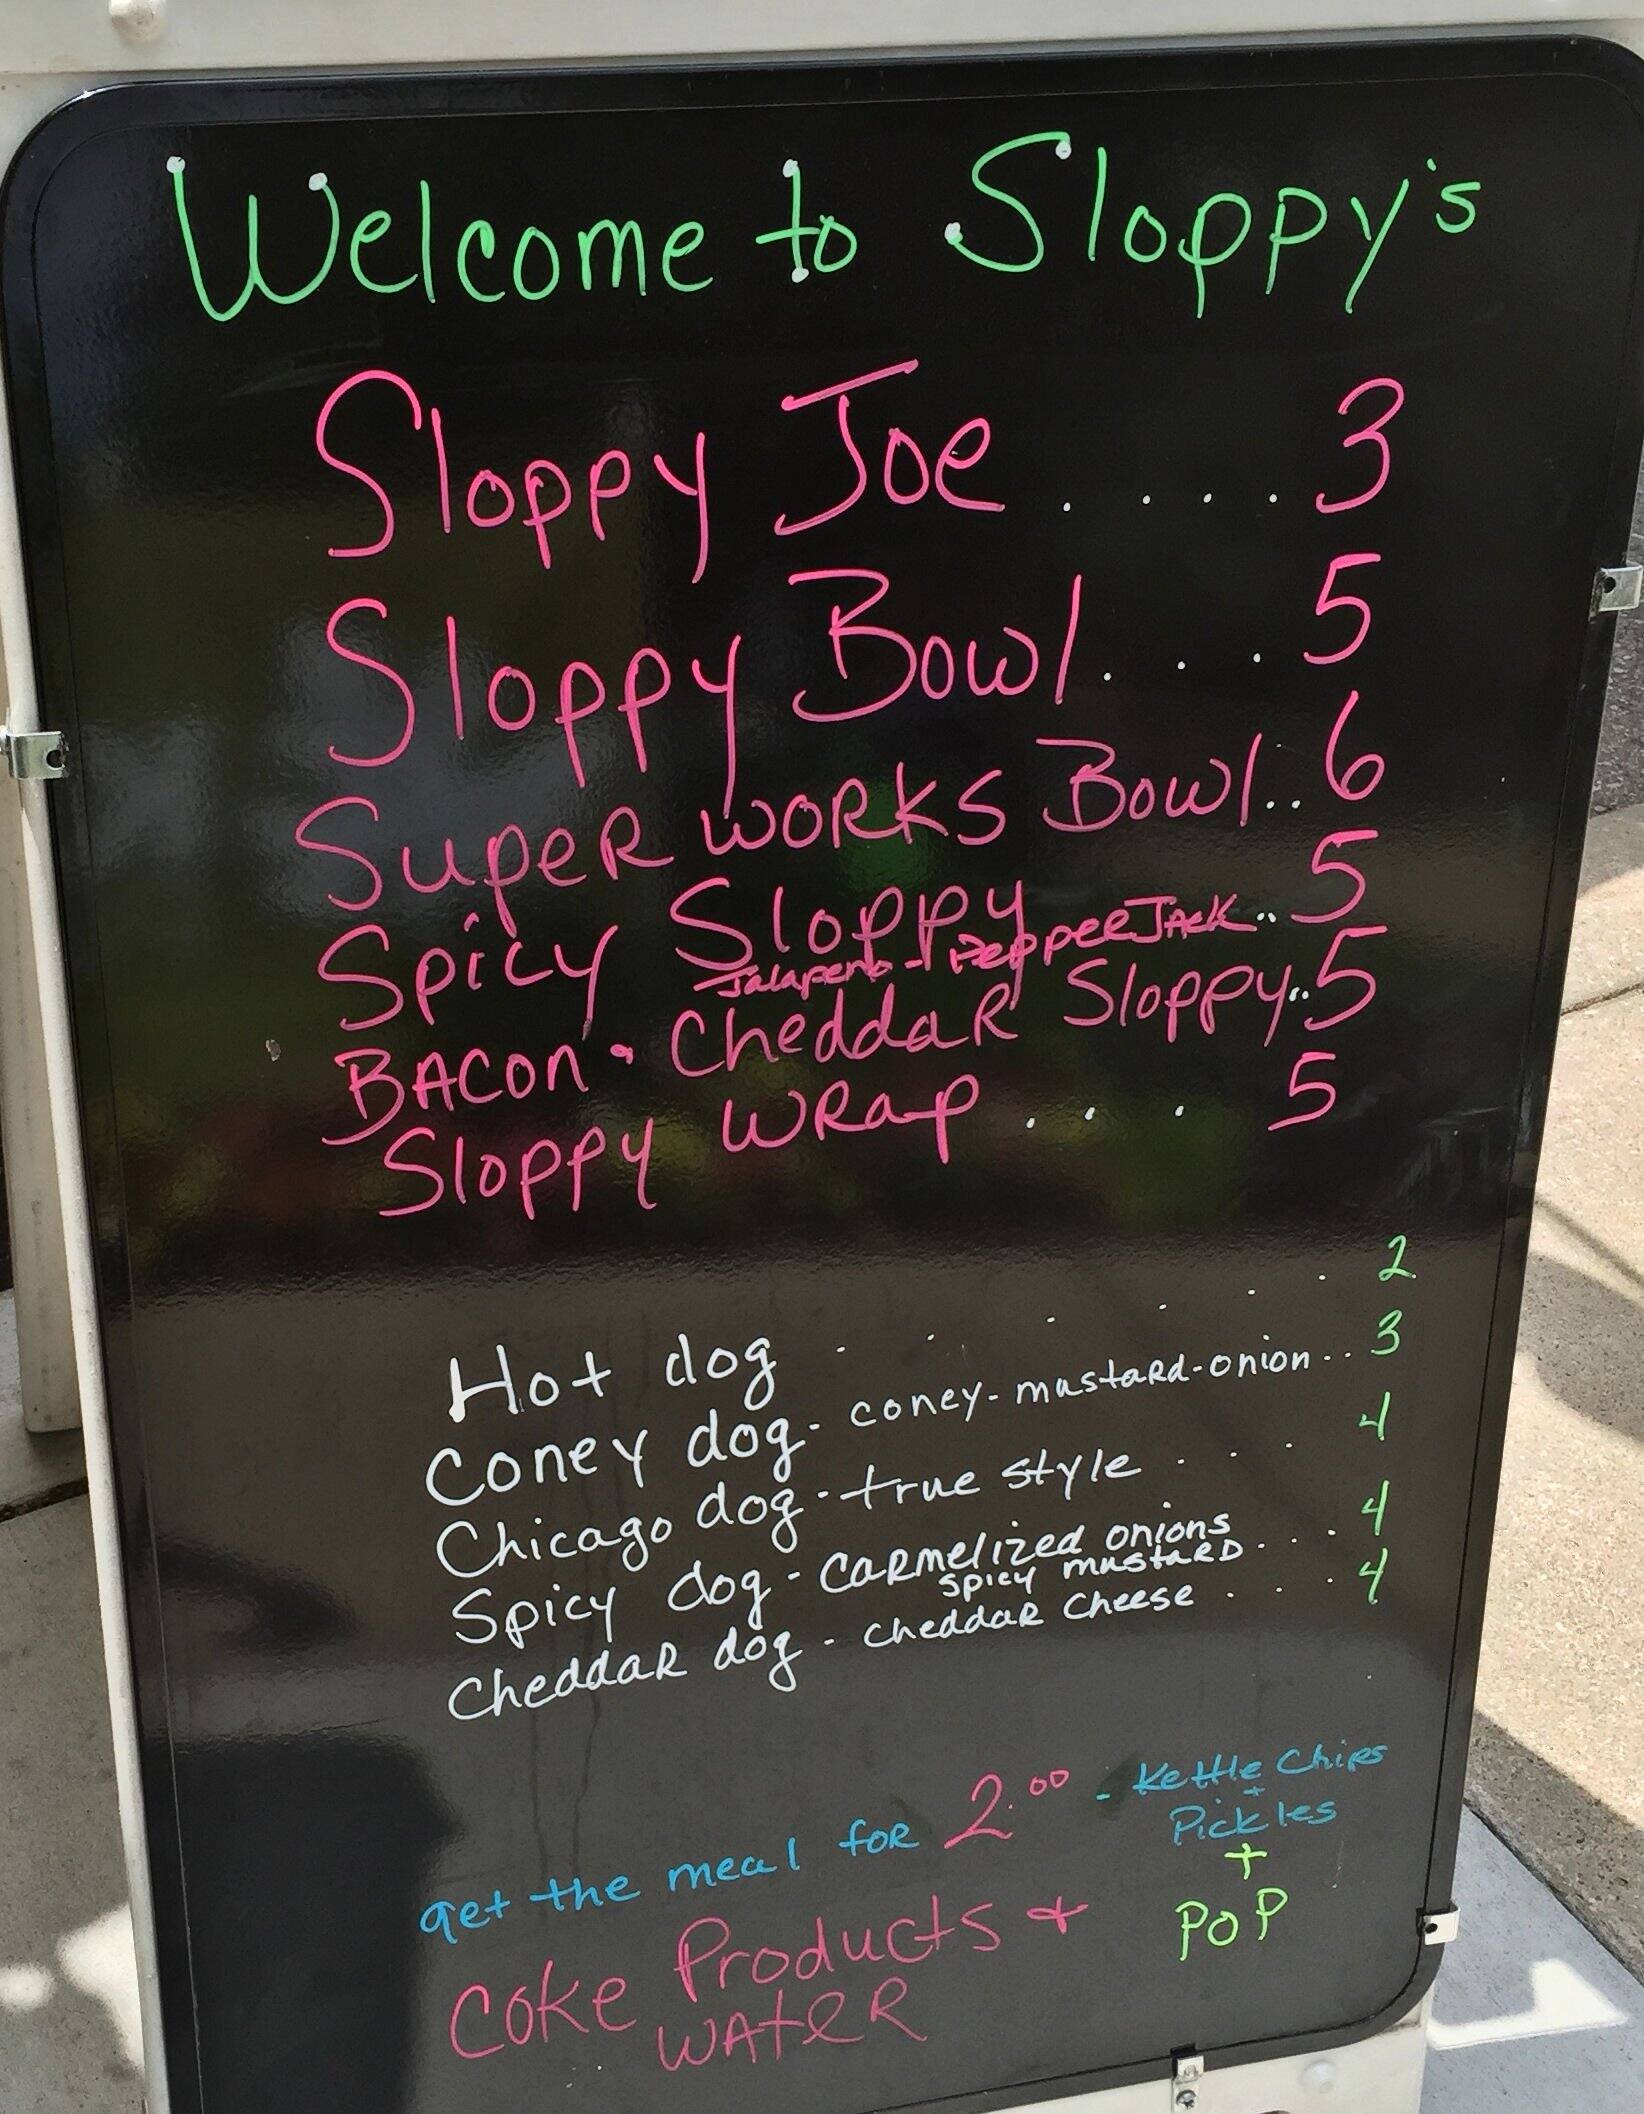 Welcome to Sloppy's
Sloppy Joe .... 3
Sloppy Bowl ... 5
Super works Bowl .. 6
Spicy Sloppy .. 5
Jalapeno - PepperJack
BACON • Cheddar Sloppy .. 5
Sloppy Wrap ... 5
Hot dog ...... 2
Coney dog - coney - mustard - onion .. 3
Chicago dog - true style ... 4
Spicy dog - carmelized onions
spicy mustard ... 4
Cheddar dog - cheddar cheese ... 4
get the meal for 2.00 - Kettle Chips
+
Pickles
+
POP
Coke Products +
water